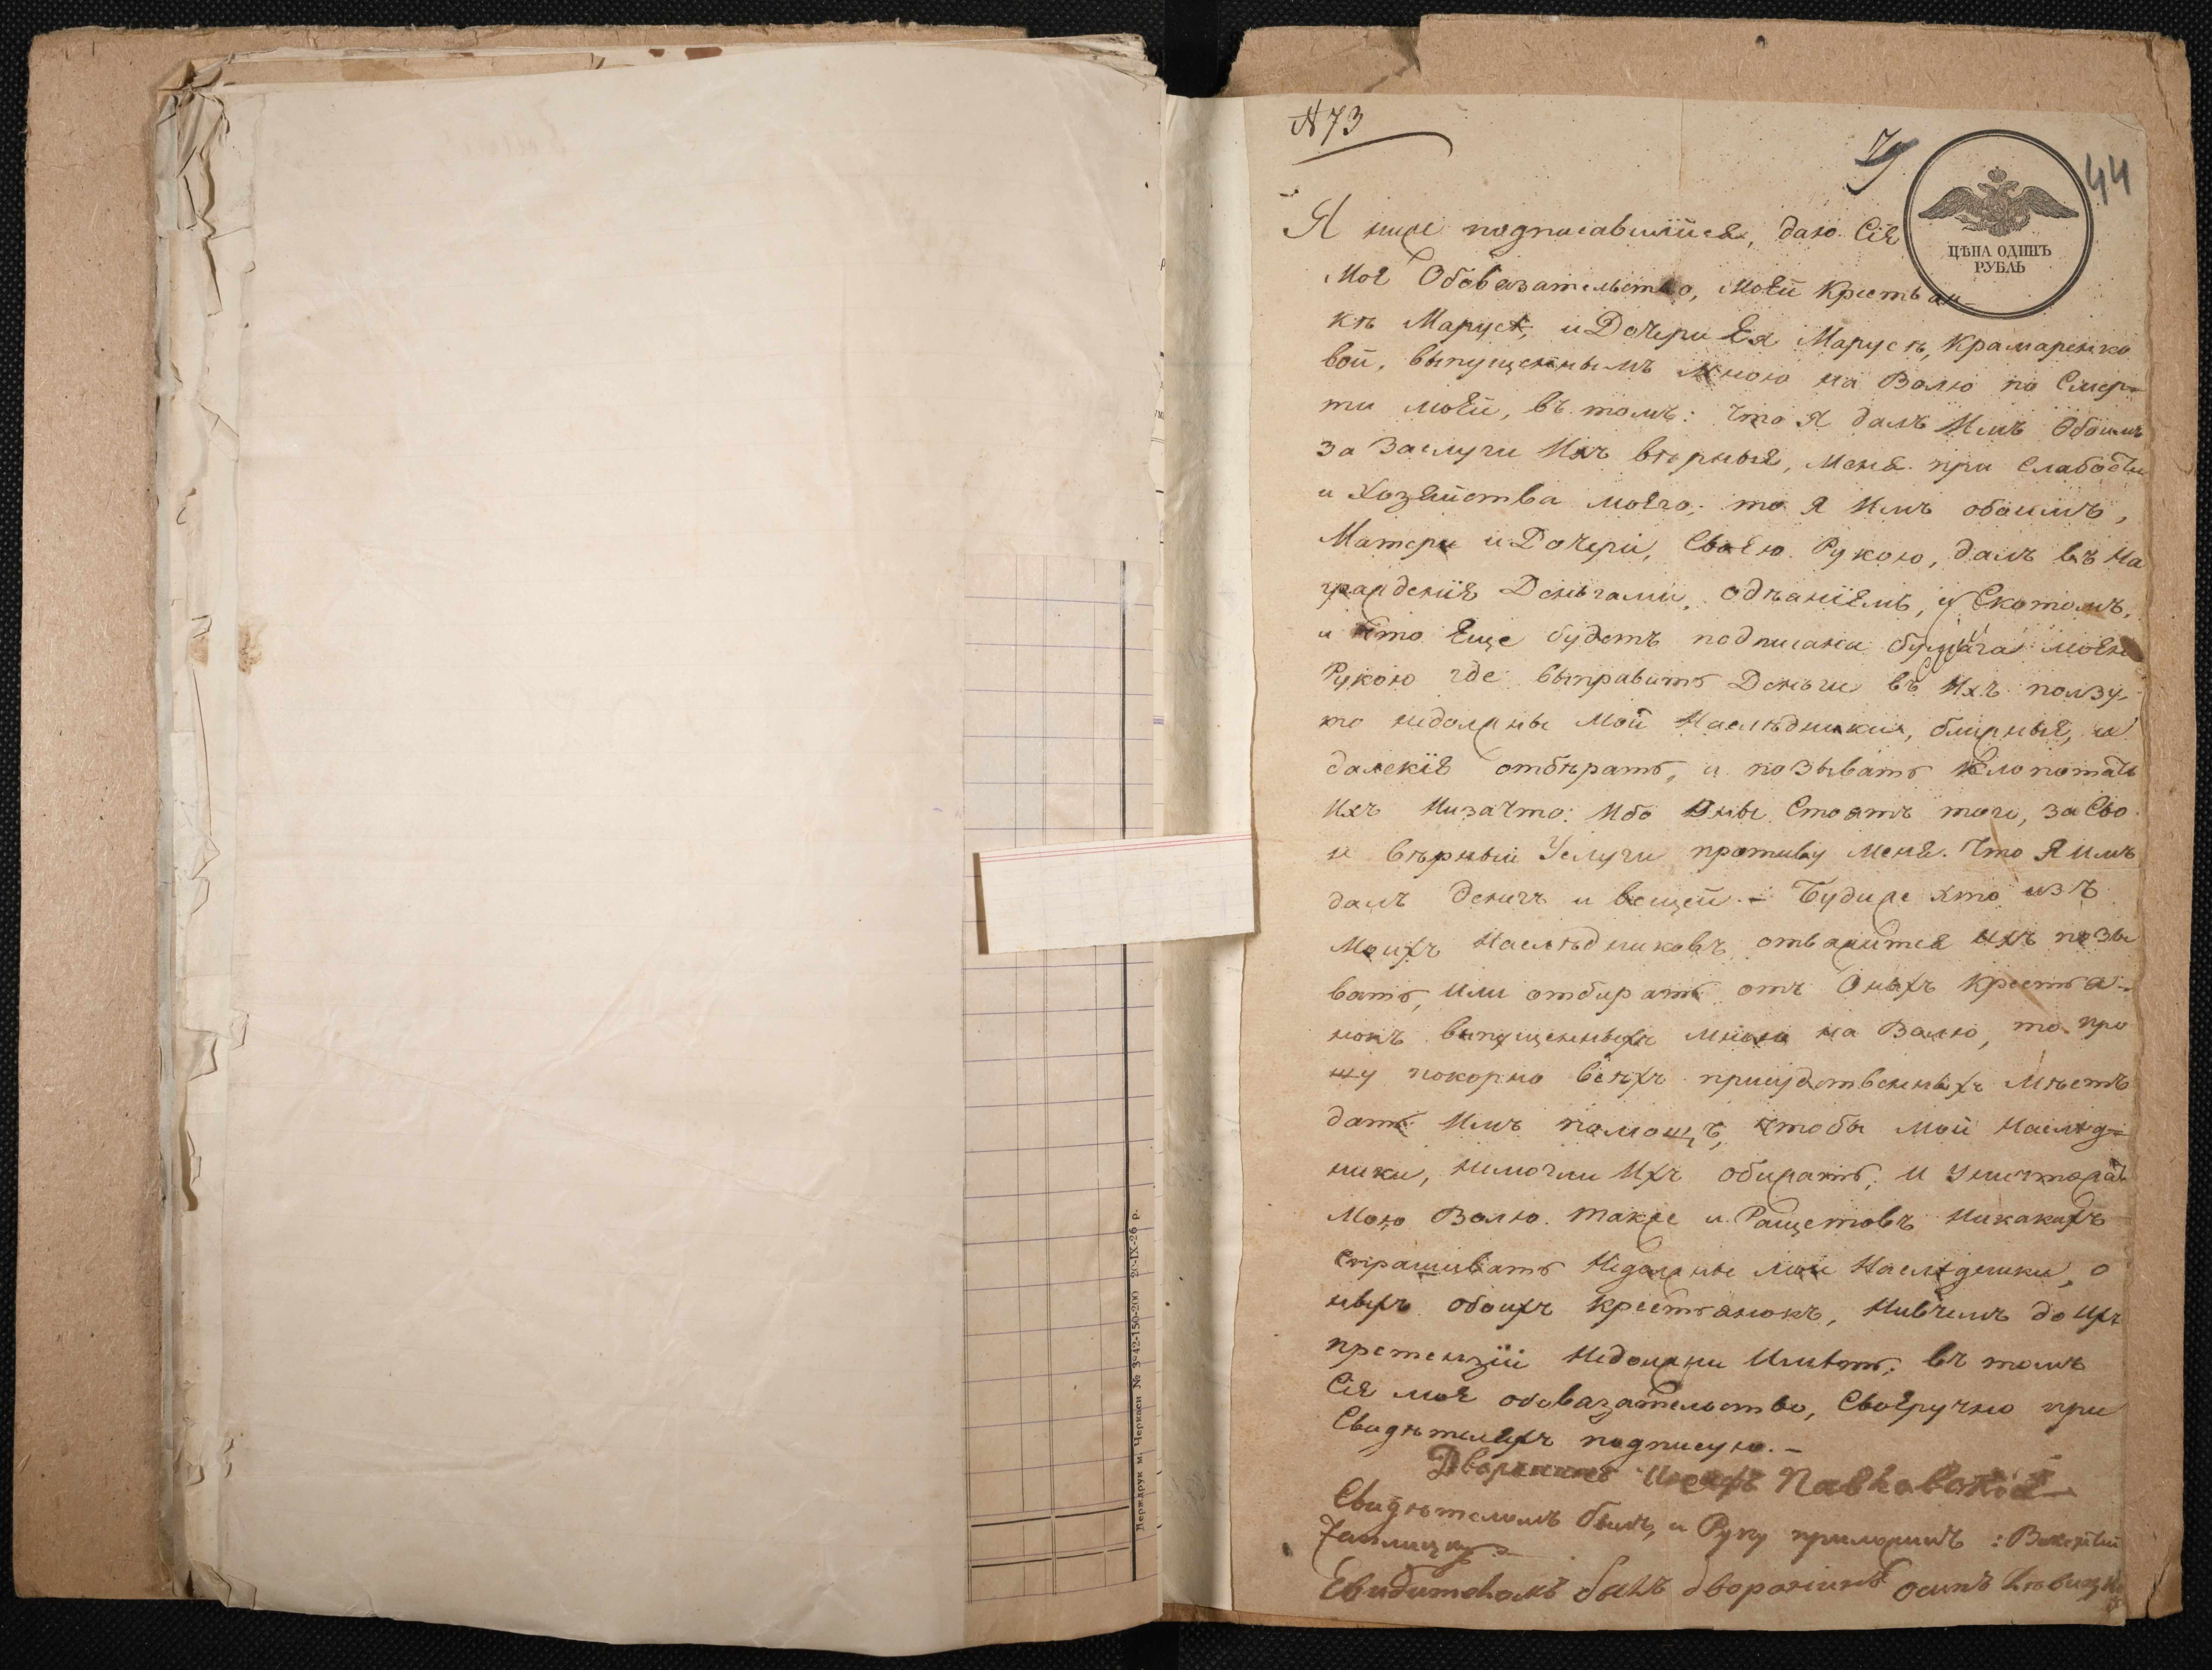 № 73
79
44
ЦѢНА ОДИНЪ
РУБЛЬ
Я ниже подписавшійся, даю Сіе
Мое Обовязательство, моей Крестьян-
кѣ Марусѣ, и Дочери Ея Марусѣ, Крамаренко
вой, выпущеннымъ мною на Волю по Смер-
ти моей, въ томъ: что Я далъ Имъ Обоимъ
за Заслуги Ихъ вѣрныя, Меня при Слабости
и Хозяйства моего; то Я Имъ обоимъ,
Матери и Дочери, Своею Рукою, далъ въ На
граждения Деньгами, одѣаніемъ, и Скотомъ,
и что Еще будетъ подписана бумага моею
Рукою где выправить Деньги въ Ихъ ползу,
то недолжны Мои Наслѣдники, ближныя, и
далекія отбѣрать, и позывать клопотать
Ихъ Низачто: Ибо Оны Стоятъ того, за Сво
и вѣрныи Услуги противу Меня. Что Я имъ
далъ денегъ и вещей. – Будиже хто изъ
Моихъ Наслѣдниковъ отважится ихъ позы
вать, или отбирать отъ Оныхъ Крестья-
нокъ выпущенныхъ мною на Волю, то про
шу покорно всѣхъ присудственныхъ Мѣстъ
дать Имъ помощъ, чтобы мои Наслѣд-
ники, немогли Ихъ обижать, и Уничтожать
Мою Волю. также и Ращетовъ Никакихъ
спрашивать Недолжны мои Наслѣдники, о
ныхъ обоихъ Крестьянокъ, Нивчемъ до Ихъ
претензіи Недолжни Имѣть; въ томъ
Сіе мое обовязательство, Своеручно при
Свидѣтеляхъ подписую. –
Дворянинъ Иосифъ Павловскій
Свидѣтелемъ былъ, и Руку приложилъ :
Свидителомъ былъ дворянинъ осипъ
Держдрук м. Черкаси № 3242-150-200 20-IX-26 р.